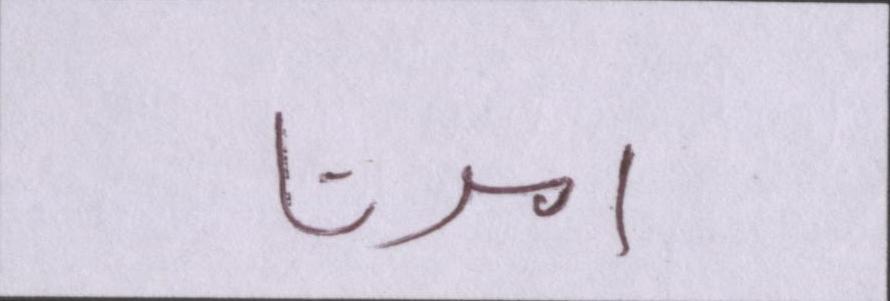 امرتا